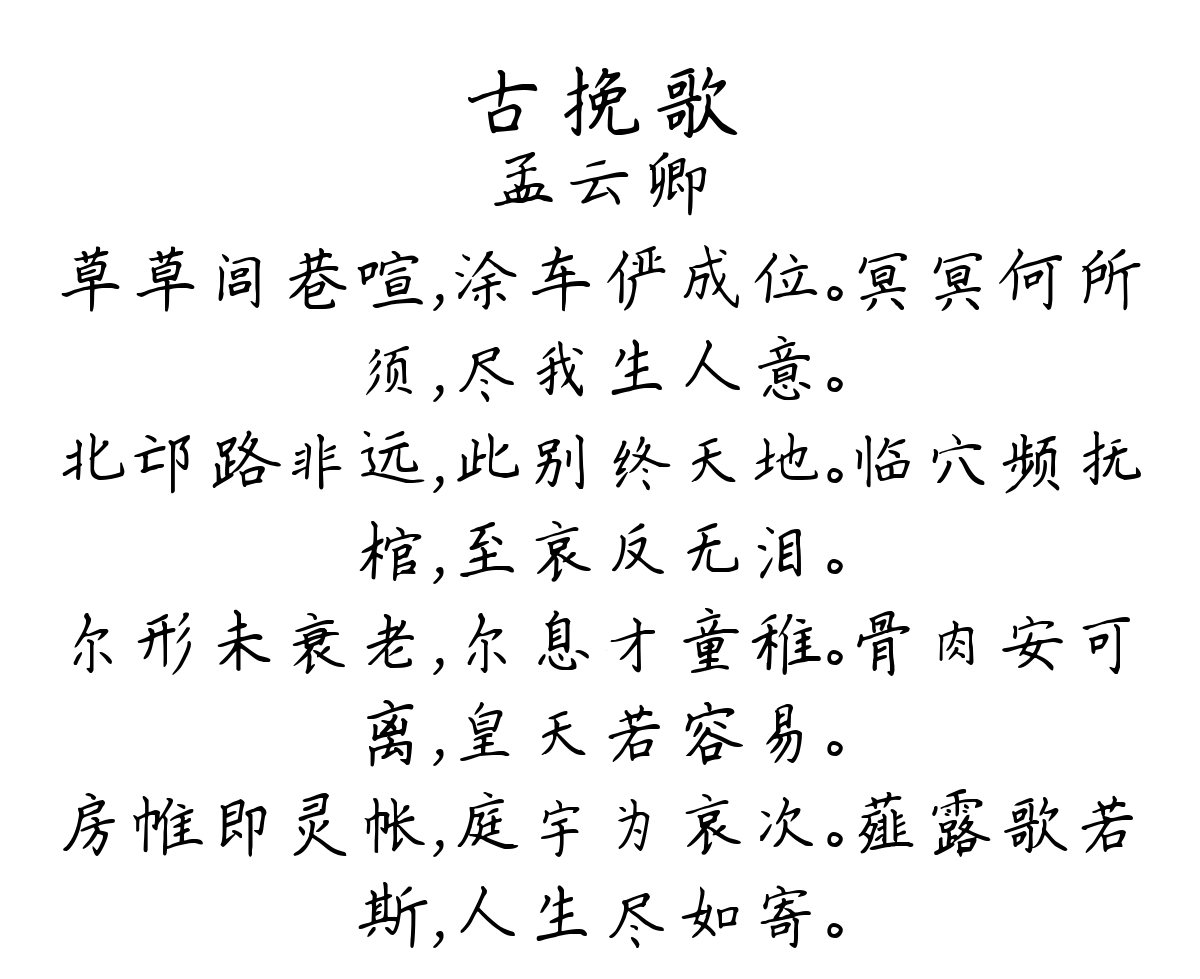 古挽歌
孟云卿
草草闾巷喧,涂车俨成位。冥冥何所
须,尽我生人意。
北邙路非远,此别终天地。临穴频抚
棺,至哀反无泪。
尔形未衰老,尔息才童稚。骨肉安可
离,皇天若容易。
房帷即灵帐,庭宇为哀次。薤露歌若
斯,人生尽如寄。